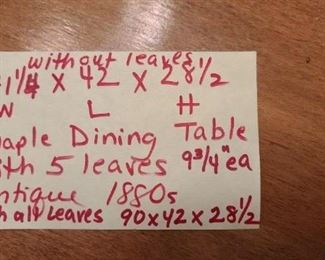 without leaves
41 1/4 x 42 x 28 1/2
W L H
Maple Dining Table
with 5 leaves 9 3/4" ea
Antique 1880s
with all leaves 90x42x28 1/2